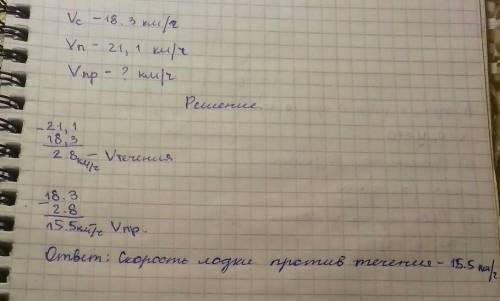 Vс – 18.3 км/ч
Vп – 21,1 км/ч
Vпр – ? км/ч
Решение.
– 21,1
18,3
2.8 км/ч – Vтечения
– 18.3
2.8
15.5 км/ч Vпр.
Ответ: Скорость лодки против течения – 15.5 км/ч